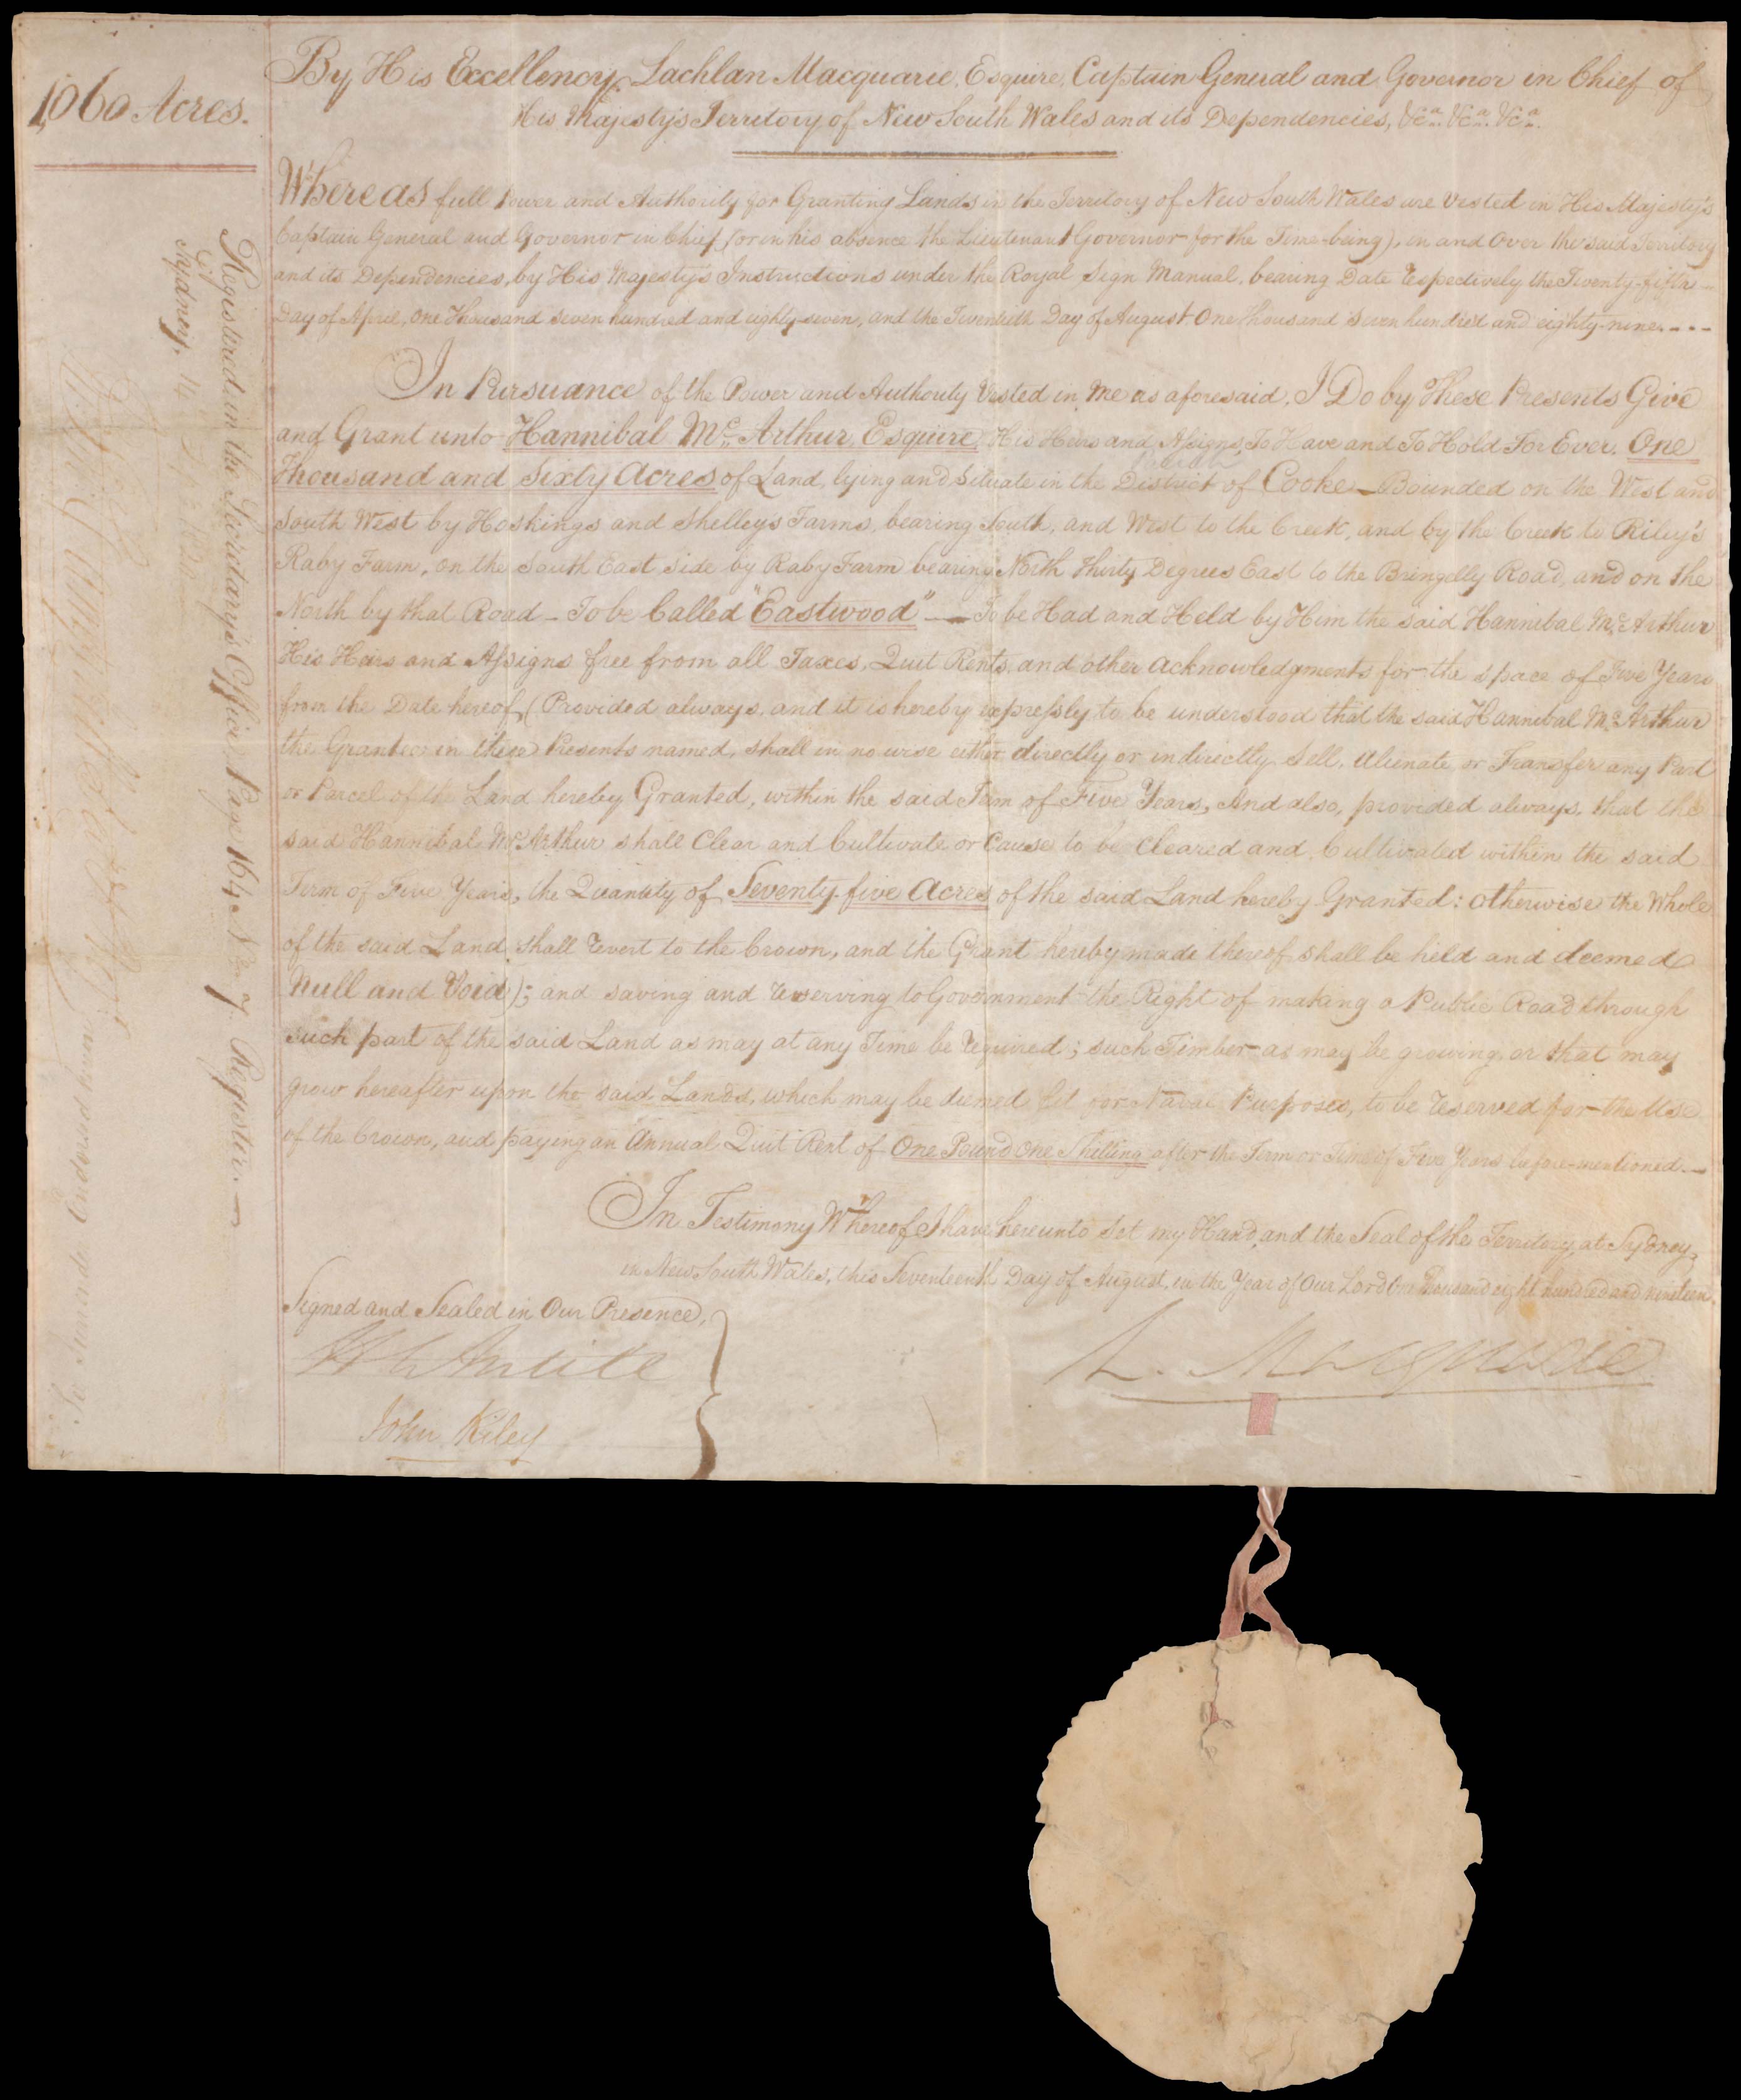 1,060 Acres.
By His Excellency Lachlan Macquarie, Esquire, Captain General and Governor in Chief of
His Majesty's Territory of New South Wales and its Dependencies, &ca. &ca. &ca.
Whereas full Power and Authority for Granting Lands in the Territory of New South Wales are Vested in His Majesty's
Captain General and Governor in Chief (or in his absence the Lieutenant Governor for the Time-being), in and Over the said Territory
and its Dependencies, by His Majesty's Instructions under the Royal Sign Manual, bearing Date respectively the Twenty-fifth
Day of April, One Thousand seven hundred and eighty-seven, and the Twentieth Day of August One Thousand Seven hundred and eighty-nine.---
In Pursuance of the Power and Authority Vested in Me as aforesaid, I Do by These Presents Give
and Grant unto Hannibal Mc. Arthur, Esquire, His Heirs and Assigns, To Have and To Hold For Ever, One
Thousand and Sixty Acres of Land, lying and Situate in the District of Cooke — Bounded on the West and
South West by Hoskings and Shelleys Farms, bearing South, and West to the Creek, and by the Creek to Riley's
Raby Farm, on the South East side by Raby Farm bearing North Thirty Degrees East to the Bringelly Road, and on the
North by that Road — To be Called "Eastwood" — To be Had and Held by Him the said Hannibal Mc. Arthur
His Heirs and Assigns free from all Taxes, Quit Rents, and other Acknowledgments for the space of Five Years
from the Date hereof, (Provided always, and it is hereby expressly to be understood that the said Hannibal Mc. Arthur
the Grantee in these Presents named, shall in no wise either directly or indirectly Sell, Alienate or Transfer any Part
or Parcel of the Land hereby Granted, within the said Term of Five Years, And also, provided always, that the
said Hannibal Mc. Arthur shall Clear and Cultivate or Cause to be Cleared and Cultivated within the said
Term of Five Years, the Quantity of Seventy-five Acres of the said Land hereby Granted: otherwise the Whole
of the said Land shall revert to the Crown, and the Grant hereby made thereof shall be held and deemed
Null and Void); and saving and reserving to Government the Right of making a Public Road through
such part of the said Land as may at any Time be required; such Timber as may be growing or that may
grow hereafter upon the said Lands, which may be deemed fit for Naval Purposes, to be reserved for the Use
of the Crown, and paying an Annual Quit Rent of One Pound One Shilling after the Term or Time of Five Years before-mentioned.—
In Testimony Whereof I have hereunto Set my Hand, and the Seal of the Territory, at Sydney,
in New South Wales, this Seventeenth Day of August, in the Year of Our Lord One Thousand eight hundred and nineteen.
Signed and Sealed in Our Presence,
L. Macquarie
John Riley
Registered in the Secretary's Office, Page 164, No. 7. Register.—
Sydney.
Endorsed hereon